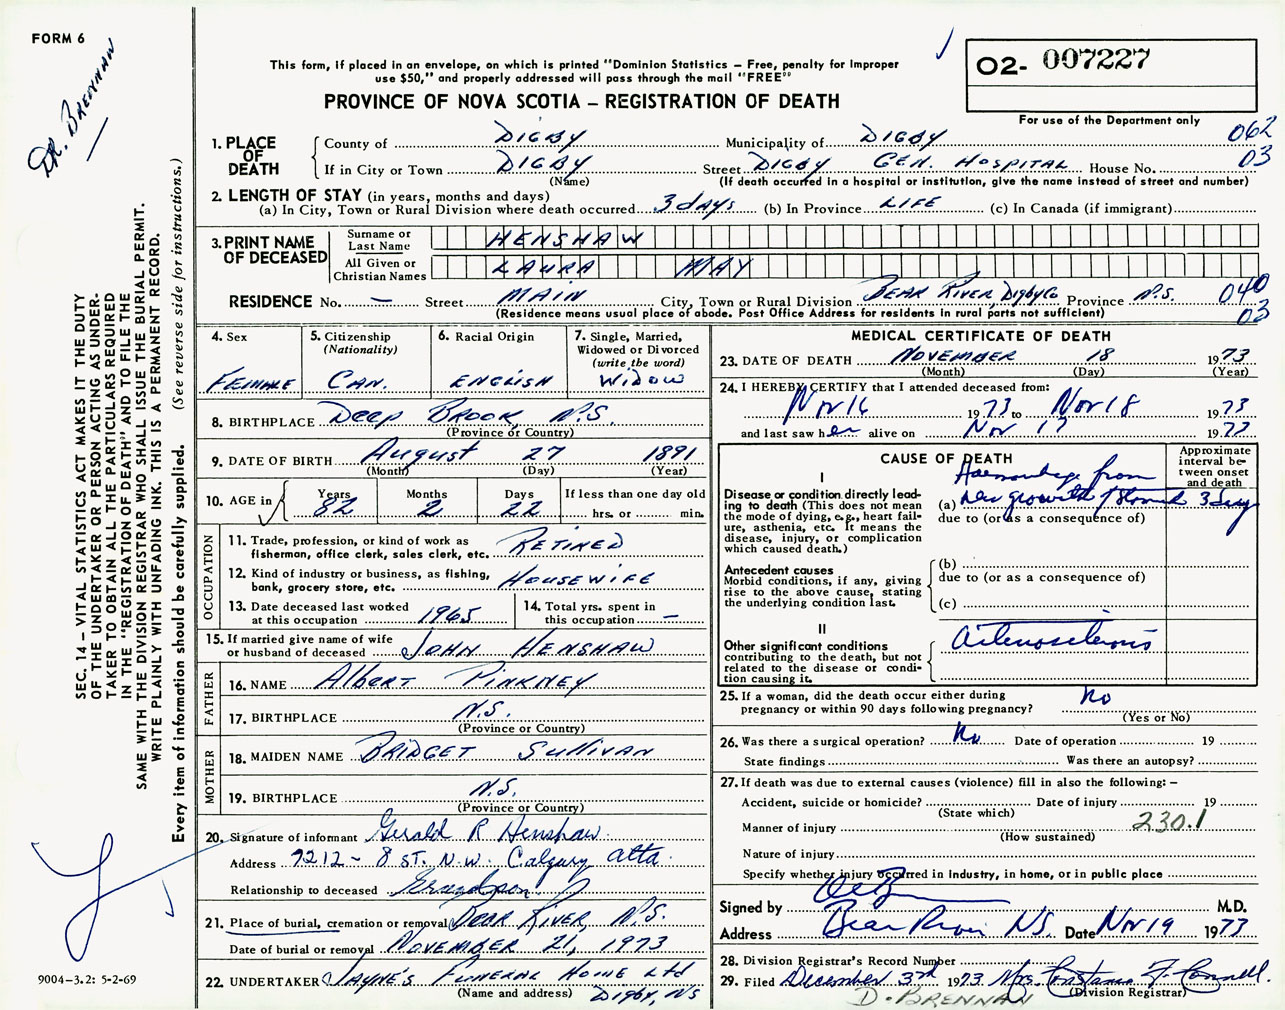 FORM 6
DR. BRENNAN
This form, if placed in an envelope, on which is printed "Dominion Statistics – Free, penalty for improper
use $50," and properly addressed will pass through the mail "FREE"
PROVINCE OF NOVA SCOTIA – REGISTRATION OF DEATH
O2- 007227
For use of the Department only
062
03
1. PLACE OF DEATH County of DIGBY Municipality of DIGBY
If in City or Town DIGBY (Name) Street DIGBY GEN. HOSPITAL House No.
(If death occurred in a hospital or institution, give the name instead of street and number)
2. LENGTH OF STAY (in years, months and days)
(a) In City, Town or Rural Division where death occurred 3 days (b) In Province LIFE (c) In Canada (if immigrant)
3. PRINT NAME OF DECEASED Surname or Last Name HENSHAW
All Given or Christian Names LAURA MAY
RESIDENCE No. – Street MAIN City, Town or Rural Division BEAR RIVER, Digby Co Province N.S. 040
03
(Residence means usual place of abode. Post Office Address for residents in rural parts not sufficient)
4. Sex FEMALE
5. Citizenship (Nationality) CAN.
6. Racial Origin ENGLISH
7. Single, Married, Widowed or Divorced (write the word) WIDOW
8. BIRTHPLACE DEEP BROOK, N.S.
(Province or Country)
9. DATE OF BIRTH August 27 1891
(Month) (Day) (Year)
10. AGE in Years 82 Months 2 Days 22 If less than one day old hrs. or min.
OCCUPATION
11. Trade, profession, or kind of work as fisherman, office clerk, sales clerk, etc. RETIRED
12. Kind of industry or business, as fishing, bank, grocery store, etc. HOUSEWIFE
13. Date deceased last worked at this occupation 1965
14. Total yrs. spent in this occupation –
15. If married give name of wife or husband of deceased JOHN HENSHAW
FATHER
16. NAME Albert PINKNEY
17. BIRTHPLACE N.S.
(Province or Country)
MOTHER
18. MAIDEN NAME BRIDGET SULLIVAN
19. BIRTHPLACE N.S.
(Province or Country)
20. Signature of informant Gerald R Henshaw
Address 7212 – 8 ST. N.W. Calgary Alta.
Relationship to deceased Grandson
21. Place of burial, cremation or removal BEAR RIVER, N.S.
Date of burial or removal NOVEMBER 21, 1973
22. UNDERTAKER JAYNE'S FUNERAL HOME Ltd
(Name and address) Digby, NS
MEDICAL CERTIFICATE OF DEATH
23. DATE OF DEATH NOVEMBER 18 1973
(Month) (Day) (Year)
24. I HEREBY CERTIFY that I attended deceased from:
Nov 16 1973 to Nov 18 1973
and last saw her alive on Nov 17 1973
CAUSE OF DEATH
Approximate interval between onset and death
I
Disease or condition directly leading to death (This does not mean the mode of dying, e.g., heart failure, asthenia, etc. It means the disease, injury, or complication which caused death.)
Haemorrhage from
(a) new growth of stomach 3 days
due to (or as a consequence of)
Antecedent causes
Morbid conditions, if any, giving rise to the above cause, stating the underlying condition last.
(b)
due to (or as a consequence of)
(c)
II
Other significant conditions contributing to the death, but not related to the disease or condition causing it.
Arteriosclerosis
25. If a woman, did the death occur either during pregnancy or within 90 days following pregnancy? No
(Yes or No)
26. Was there a surgical operation? No Date of operation 19
State findings Was there an autopsy?
27. If death was due to external causes (violence) fill in also the following: –
Accident, suicide or homicide? Date of injury 19
(State which)
Manner of injury 230.1
(How sustained)
Nature of injury
Specify whether injury occurred in industry, in home, or in public place
Signed by M.D.
Address Bear River NS. Date Nov 19 1973
28. Division Registrar's Record Number
29. Filed December 3rd 1973 Mrs. Constance F. Connell.
(Division Registrar)
D. BRENNAN
SEC. 14 – VITAL STATISTICS ACT MAKES IT THE DUTY
OF THE UNDERTAKER OR PERSON ACTING AS UNDER-
TAKER TO OBTAIN ALL THE PARTICULARS REQUIRED
IN THE "REGISTRATION OF DEATH" AND TO FILE THE
SAME WITH THE DIVISION REGISTRAR WHO SHALL ISSUE THE BURIAL PERMIT.
WRITE PLAINLY WITH UNFADING INK. THIS IS A PERMANENT RECORD.
Every item of information should be carefully supplied. (See reverse side for instructions.)
9004-3.2: 5-2-69